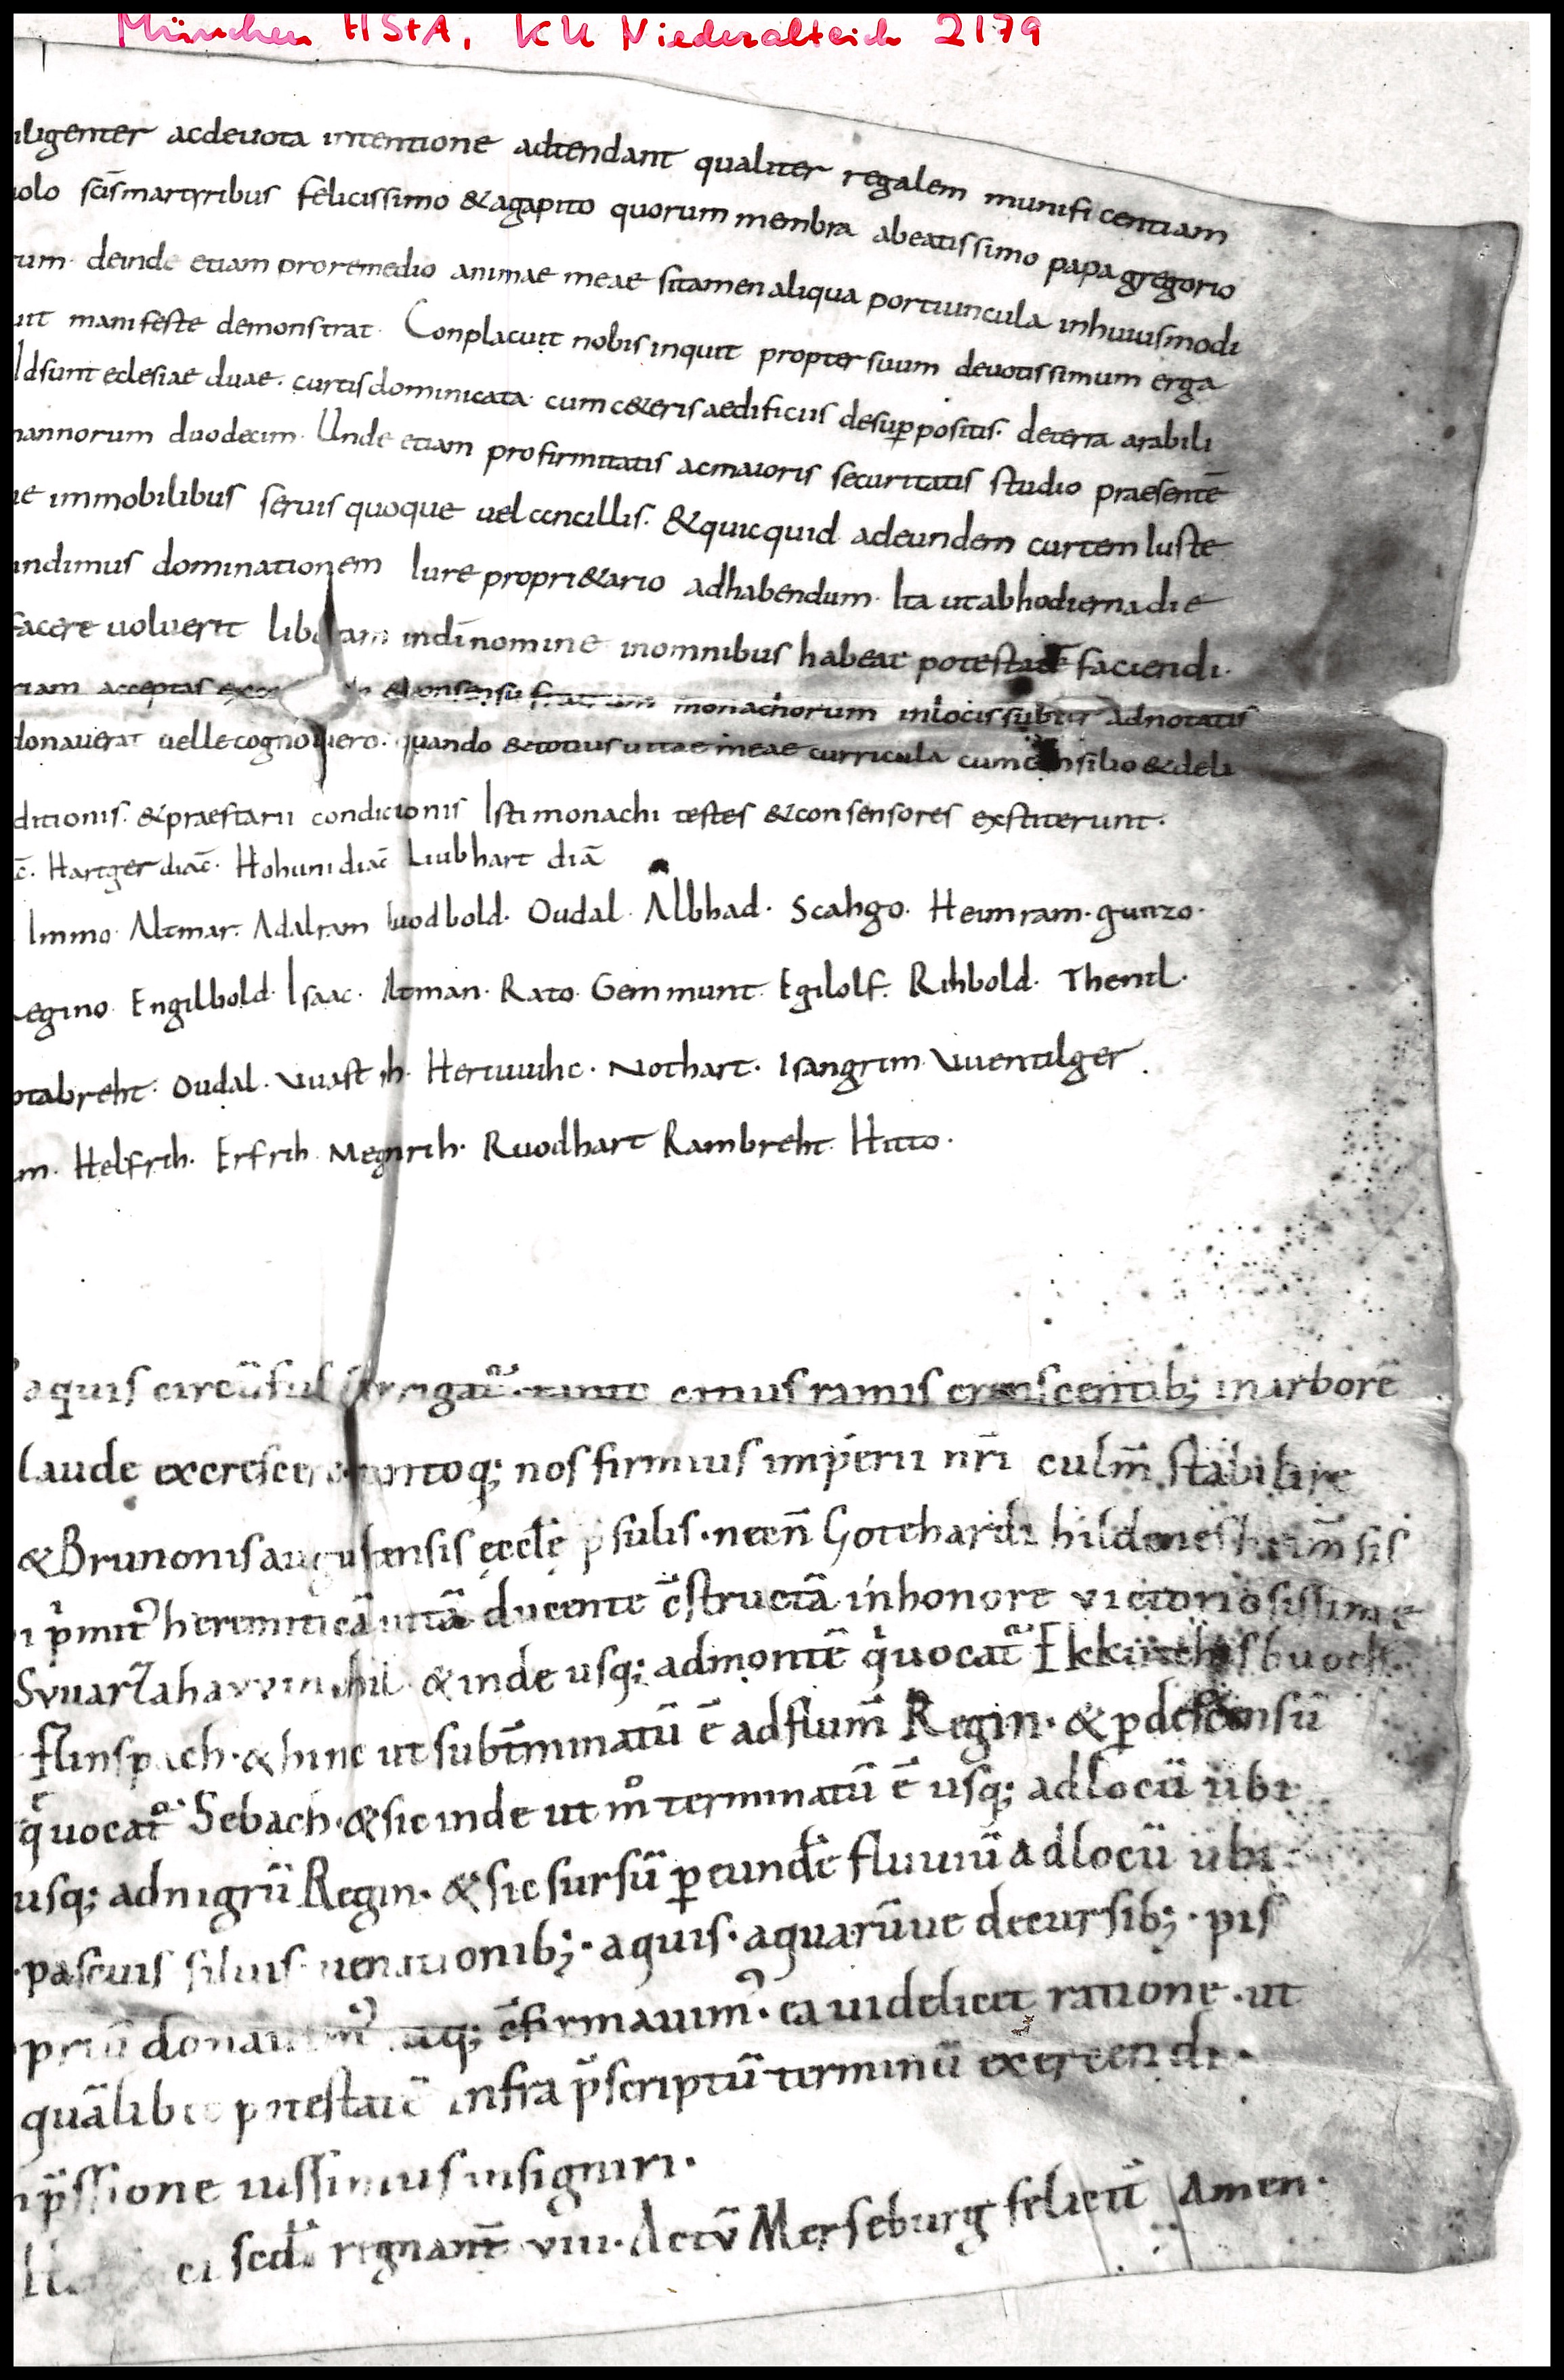 München HStA, KU Niederalteich 2179
iligenter acdeuota intentione adtendant qualiter regalem munificentiam
uolo scīsmartyribus felicissimo &agapito quorum membra abeatissimo papa gregorio
rum· deinde etiam proremedio animae meae sitamenaliqua portiuncula inhuiusmodi
uit manifeste demonstrat· Conplacuit nobis inquit propter suum deuotissimum erga
ldsunt eclesiae duae· curtisdominicata cumc&eris aedificiis desuperpositis· deterra arabili
mannorum duodecim· Unde etiam profirmitatis acmaioris securitatis studio praesentē
ue immobilibus seruis quoque uel ancillis· &quicquid adeundem curtem Iuste
undimus dominationem Iure propri&ario adhabendum· Ita utabhodiernadie
facere uoluerit indī nomine inomnibus habeat potestatē faciendi·
riam acceptas &consensu fratrum monachorum inlocis subtus adnotatis
donauerat uellecognouero· quando &totius uitae meae curricula cumconsilio &deli
ditionis· &praestarii condicionis Isti monachi testes &consensores exstiterunt·
c̄· Hartger diac̄· Hohuni diac̄ Liubhart diā
Immo· Altmar· Adalram Luodbold· Oudal· Albhad· Scahgo· Heimram· gunzo·
Regino· Engilbold· Isaac· Altman· Rato· Gemmunt· Egilolf· Rihbold· Thentl·
otabreht· Oudal· Heriuuihc· Nothart· Isangrim· Uuentilger·
m· Helfrih· Erfrih· Meginrih· Ruodhart Rambreht· Hitto·
aquis circūful ramis crescentib; inarborē
laude excrescere tantoq; nos firmius imperii nr̄i culm̄ stabilire
&Brunonis augustensis ęccłę p̄sulis· necn̄ Gotehardi hildenesheim̄sis
i p̄mit' heremiticā uitā ducente c̄structā inhonore victoriosissimę
Svuarzaha &inde usq; admontē q'uocat'
flinspach· &hinc ut subt̄minatū ē adflum̄ Regin· &p descensū
q'uocat' Sebach· &sic inde ut m° terminatū ē usq; adlocū ubi
usq; adnigrū Regin· &sic sursū p eundē fluuiū adlocū ubi
·pascuis siluis· uenationib;· aquis· aquarūue decursib;· pis
priū donauim' atq; c̄firmauim'· ea uidelicet ratione· ut
quālibet potestatē infra p̄scriptū terminū exercendi·
p̄ssione iussimus insigniri·
scd̄i regnant̄ viii· Actū Merseburg feliciť Amen·